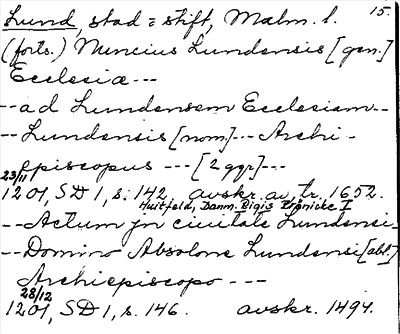 Lund, stad o stift, Malm. l. 15.
(forts.) Nuncius Lundensis [gen.]
Ecclesiæ ---
-- ad Lundensem Ecclesiam --
-- Lundensis [nom] --- Archi-
episcopus --- [2 ggr] ---
23/11
1201, SD 1, s. 142. avskr. av tr. 1652.
Huitfeld, Danm. Rigis Krønicke I
-- Actum jn ciuitate Lundensi --
-- Domino Absolone Lundensi [abl.]
Archiepiscopo ---
28/12
1201, SD 1, s. 146. avskr. 1494.